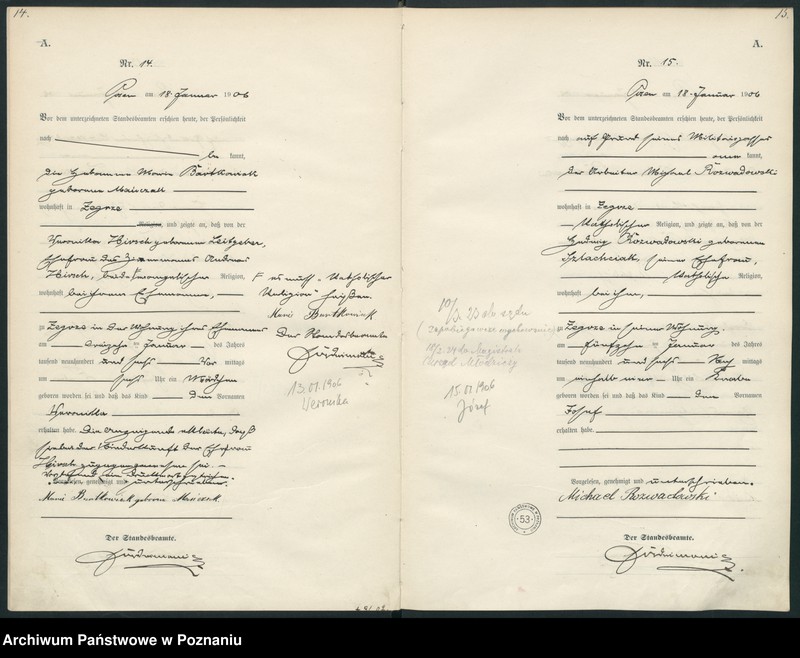 14.
A.
Nr. 14.
Posen am 18. Januar 1906
Vor dem unterzeichneten Standesbeamten erschien heute, der Persönlichkeit
nach
be kannt,
die Hebamme Marie Bartkowiak
geborene
wohnhaft in Zegrze
Religion, und zeigte an, daß von der
Veronika Hirsch geborenen Leitgeber,
Ehefrau des Zimmermanns Andreas
Hirsch, beide evangelischer Religion,
wohnhaft bei ihrem Ehemanne,
zu Zegrze in der Wohnung ihres Ehemannes
am dreizehn ten Januar des Jahres
tausend neunhundert und sechs Vor mittags
um sechs Uhr ein Mädchen
geboren worden sei und daß das Kind den Vornamen
Veronika
erhalten habe. Die Anzeigende erklärte, daß
sie bei der Niederkunft der Ehefrau
Hirsch zugegen gewesen sei.
Vorstehend Druckworte gestrichen.
Vorgelesen, genehmigt und unterschrieben.
Marie Bartkowiak geborene
Der Standesbeamte.
F es muß "Katholischer
Religion" heißen.
Marie Bartkowiak
Der Standesbeamte
13.01.1906
Veronika
15.
A.
Nr. 15.
Posen am 18. Januar 1906
Vor dem unterzeichneten Standesbeamten erschien heute, der Persönlichkeit
nach auf Grund seines Militairpasses
aner kannt,
der Arbeiter Michael Rozwadowski
wohnhaft in Zegrze
katholischer Religion, und zeigte an, daß von der
Hedwig Rozwadowski geborenen
Szlachciak, seiner Ehefrau,
katholischer Religion,
wohnhaft bei ihm,
zu Zegrze in seiner Wohnung,
am fünfzehn ten Januar des Jahres
tausend neunhundert und sechs Nach mittags
um einhalb neun Uhr ein Knabe
geboren worden sei und daß das Kind den Vornamen
Josef
erhalten habe.
Vorgelesen, genehmigt und unterschrieben.
Michael Rozwadowski
Der Standesbeamte.
15.01.1906
Józef
53
Archiwum Państwowe w Poznaniu